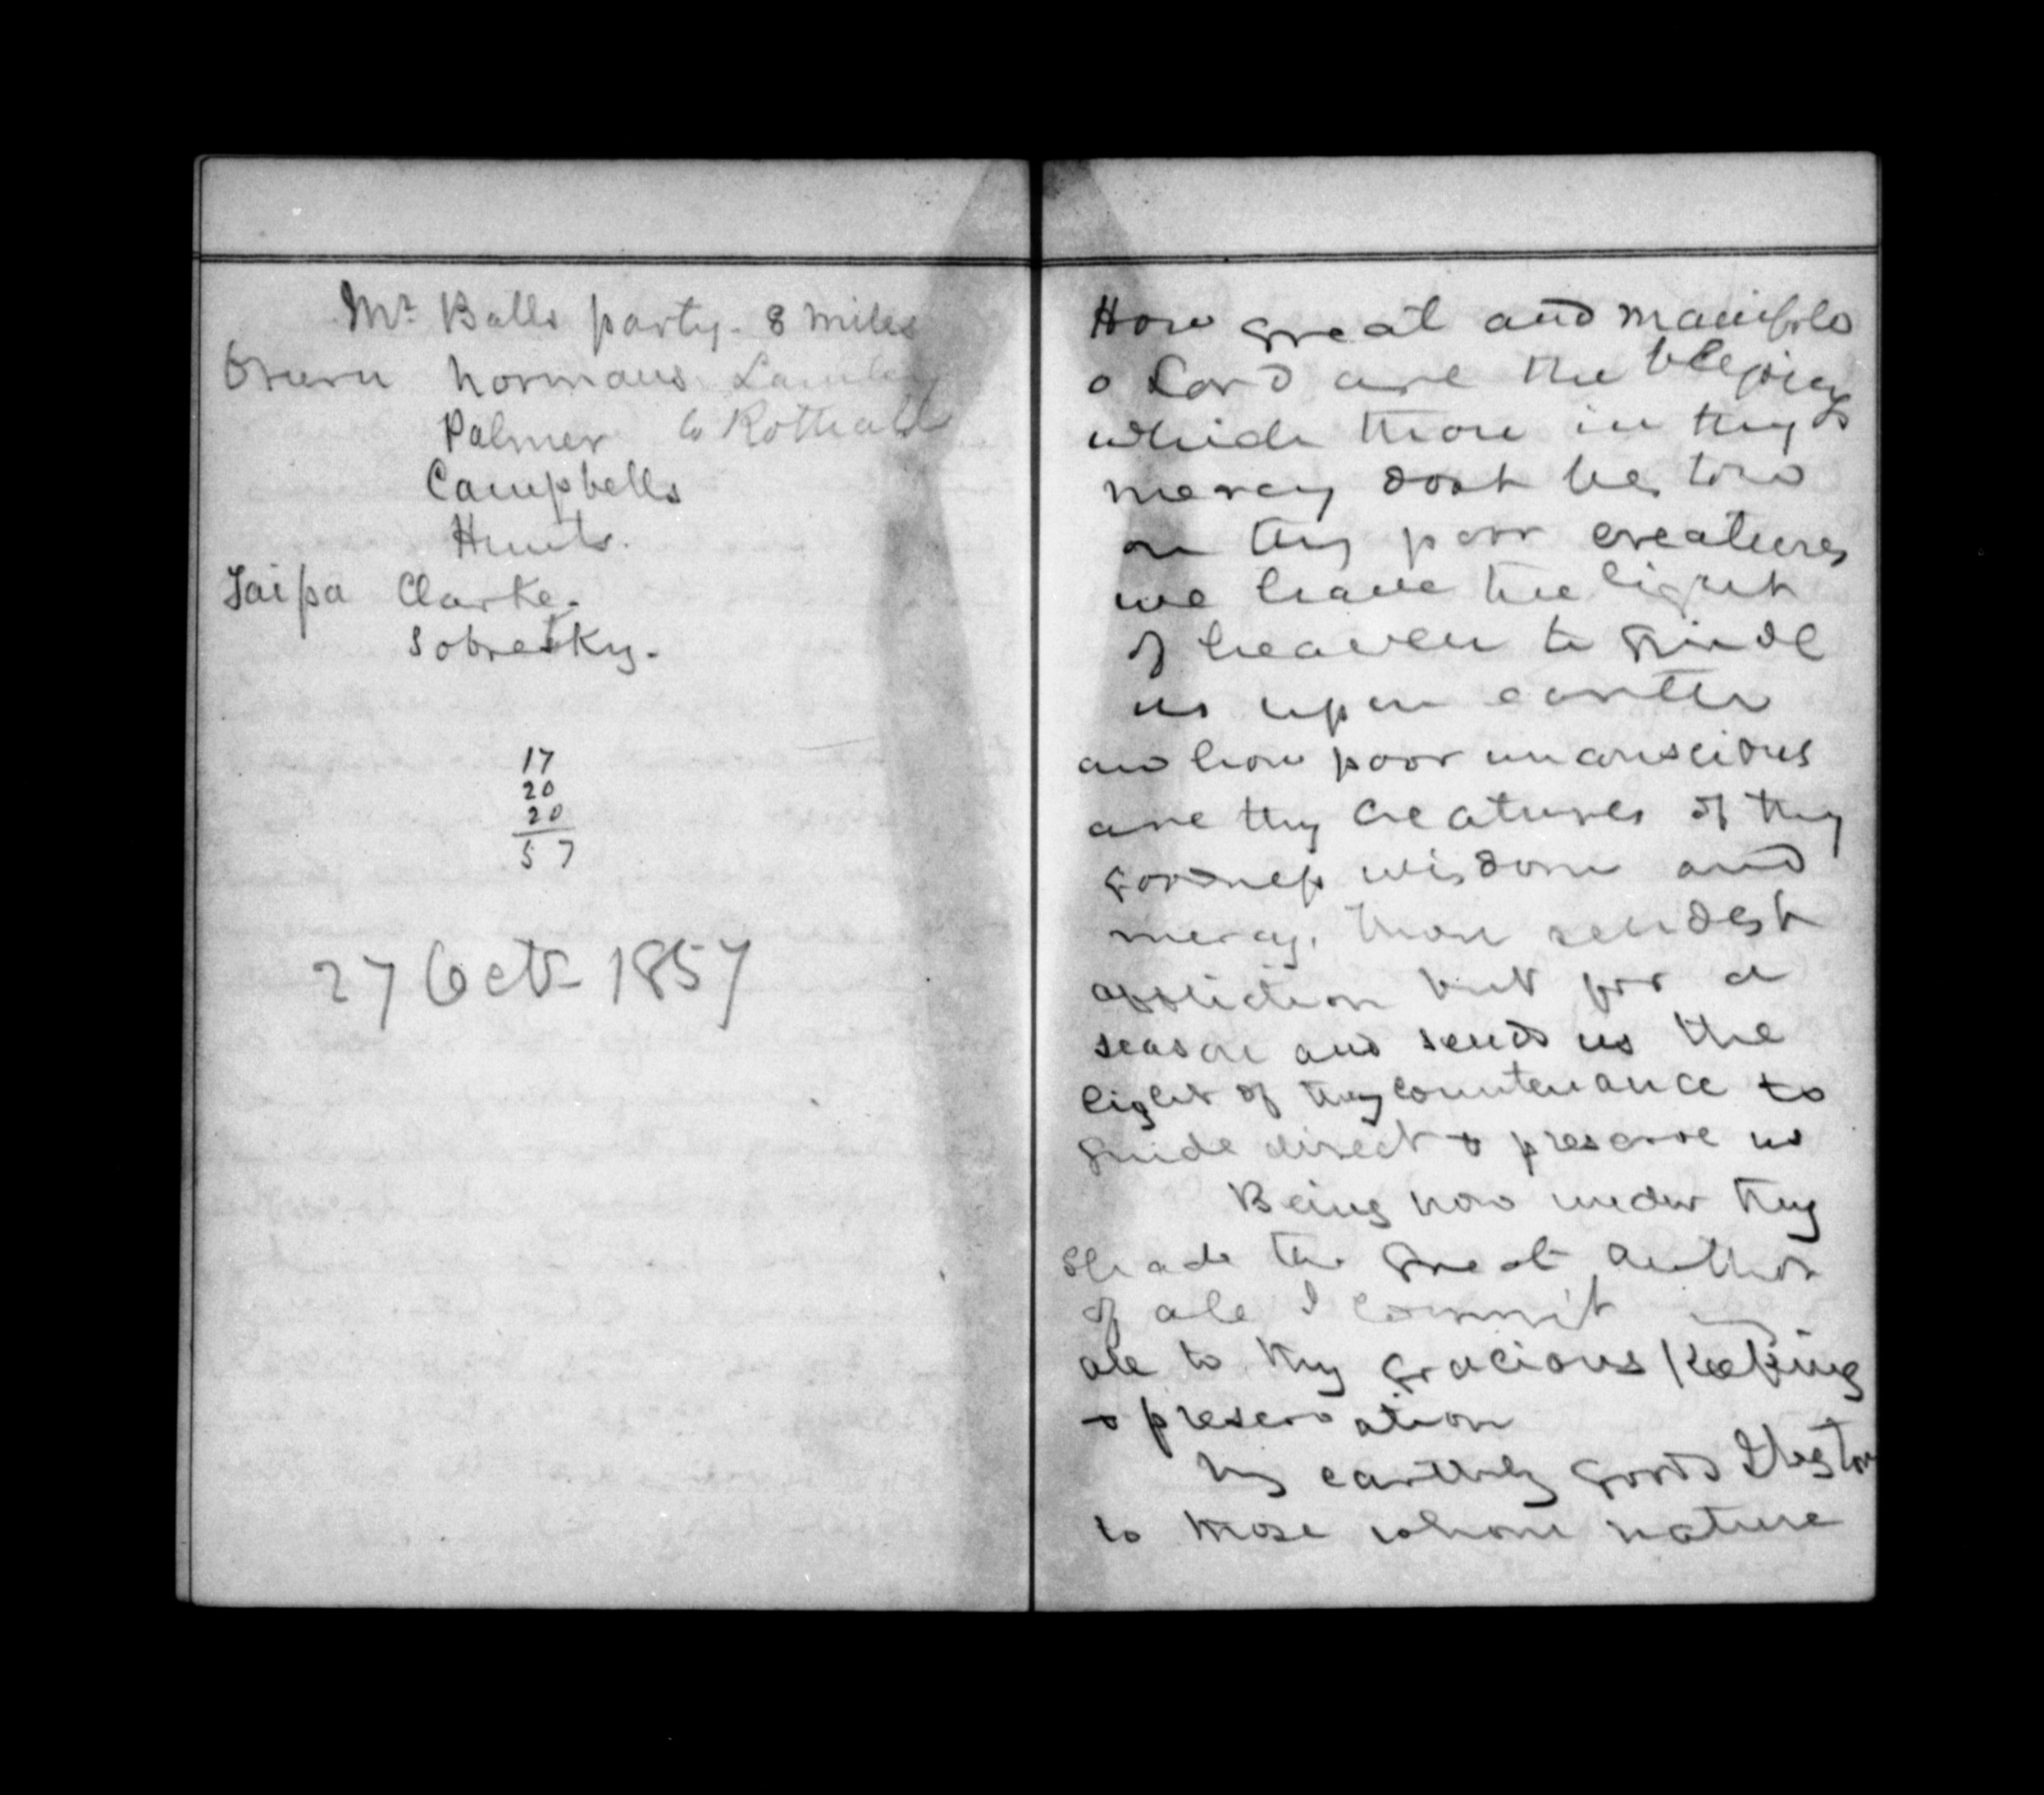 Mr Balls party - 8 miles
Oruru Normans
Palmer to Rothall
Campbells
Hunts.
Taipa Clarke.
Sobretky.
17
20
20
57
27 Oct 1857
How great and manifold
o Lord are the blessings
which thou in thy
mercy dost bestow
on thy poor creatures
we have the light
of heaven to guide
us upon earth
and how poor unconscious
are thy creatures of thy
goodness wisdom and
mercy. Thou sendest
affliction but for a
season and sends us the
light of thy countenance to
guide direct & preserve us
Being now under thy
shade the great author
of all I commit
all to thy gracious keeping
& preservation
My earthly goods I bestow
to those whom nature